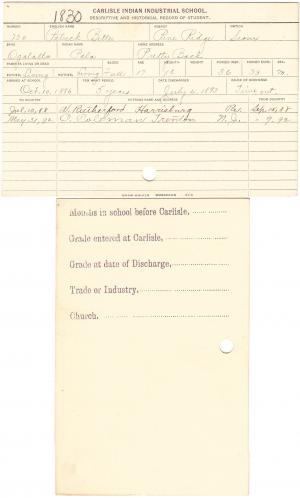 1830 CARLISLE INDIAN INDUSTRIAL SCHOOL.
DESCRIPTIVE AND HISTORICAL RECORD OF STUDENT.
NUMBER ENGLISH NAME AGENCY NATION
720 Pine Ridge Sioux
BAND INDIAN NAME HOME ADDRESS
Ogalalla Pretty Back
PARENTS LIVING OR DEAD BLOOD AGE HEIGHT WEIGHT FORCED INSP. FORCED EXPR. SEX
FATHER Living MOTHER Living Full 17 M.
ARRIVED AT SCHOOL FOR WHAT PERIOD DATE DISCHARGED CAUSE OF DISCHARGE
Oct. 10, 1886 5 years July 6, 1893 Time out.
TO COUNTRY PATRONS NAME AND ADDRESS FROM COUNTRY
Jul. 10, 88 W. Rutherford Harrisburg Pa. Sep. 14, 88
May 31, 92 O. Coleman Trenton N. J. 9. 92
Months in school before Carlisle,
Grade entered at Carlisle,
Grade at date of Discharge,
Trade or Industry.
Church.